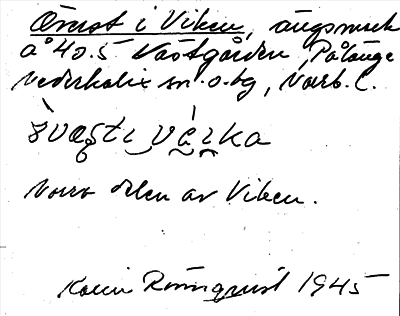 Övrast i Viken, ängsmark
å 4o.5 Västgården, Pålänge
Nederkalix sn. o. by, Norrb. l.
Norra delen av Viken.
Karin Rönnquist 1945